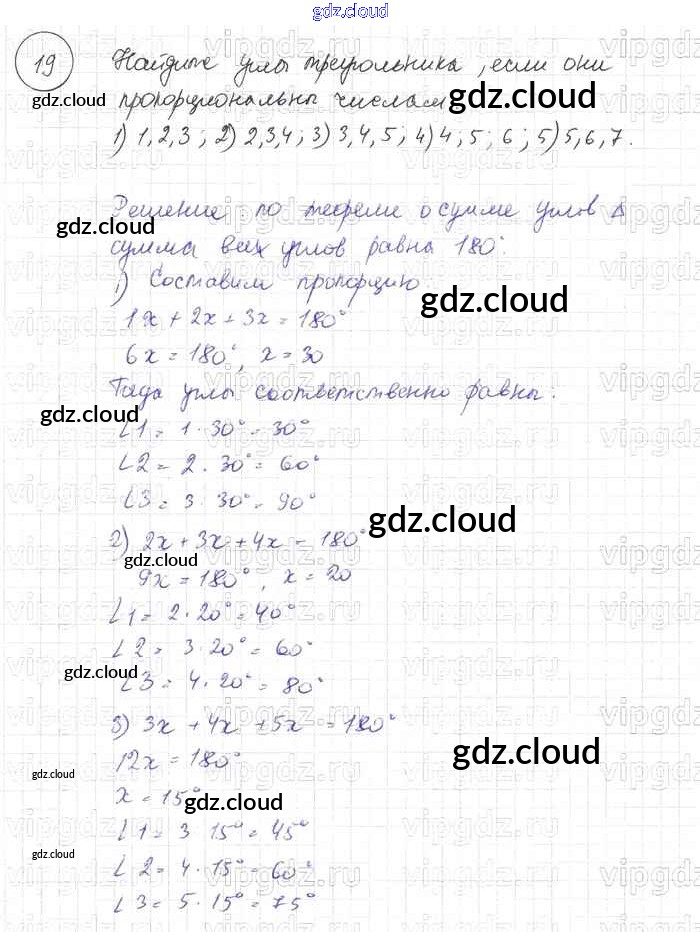 gdz.cloud
19 Найдите углы треугольника, если они
gdz.cloud пропорциональны числам gdz.cloud
1) 1,2,3; 2) 2,3,4; 3) 3,4,5; 4) 4; 5; 6; 5) 5,6,7.
Решение: по теореме о сумме углов Δ
gdz.cloud
сумма всех углов равна 180°.
1) Составим пропорцию gdz.cloud
1x + 2x + 3x = 180°
6x = 180°, x = 30
Тогда углы соответственно равны:
gdz.cloud
∠1 = 1 · 30° = 30°
∠2 = 2 · 30° = 60°
∠3 = 3 · 30° = 90°
gdz.cloud
2) 2x + 3x + 4x = 180°
gdz.cloud
9x = 180°, x = 20
∠1 = 2 · 20° = 40°
∠2 = 3 · 20° = 60°
gdz.cloud
∠3 = 4 · 20° = 80°
3) 3x + 4x + 5x = 180°
gdz.cloud
12x = 180°
gdz.cloud
x = 15° gdz.cloud
∠1 = 3 15° = 45°
gdz.cloud
∠2 = 4 · 15° = 60°
∠3 = 5 · 15° = 75°